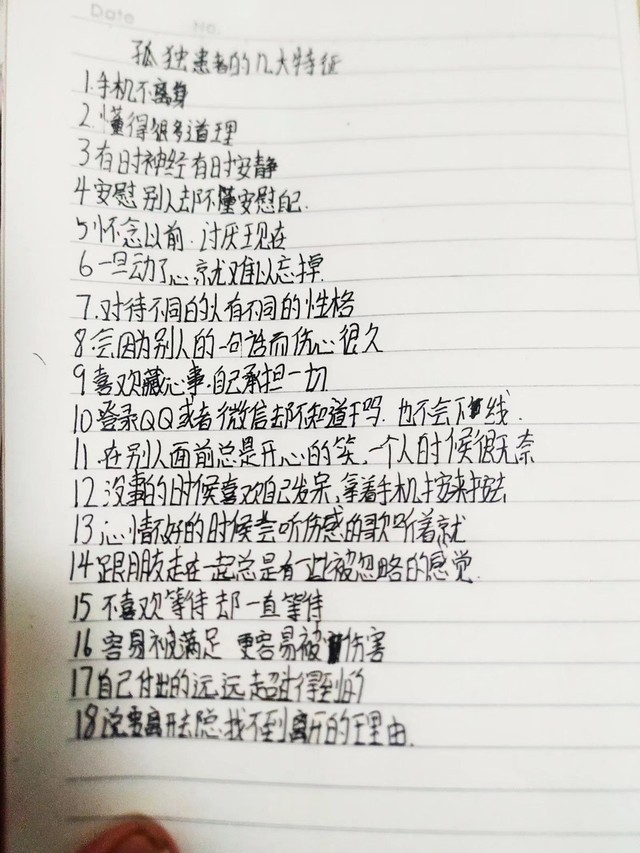 Date
No.
孤独患者的几大特征
1.手机不离身
2.懂得很多道理
3有时神经有时安静
4安慰别人却不懂安慰自己.
5怀念以前.讨厌现在
6一旦动了心就难以忘掉.
7.对待不同的人有不同的性格
8.会因为别人的一句话而伤心很久
9喜欢藏心事.自己承担一切
10登录QQ或者微信却不知道干吗.也不会下线.
11.在别人面前总是开心的笑,一个人时候很无奈
12.没事的时候喜欢自己发呆,拿着手机按来按去
13.心情不好的时候会听伤感的歌听着就
14跟朋友走在一起总是有一些被忽略的感觉.
15不喜欢等待却一直等待
16容易被满足 更容易被伤害
17自己付出的远远超过得到的
18说要离开却总找不到离开的理由.